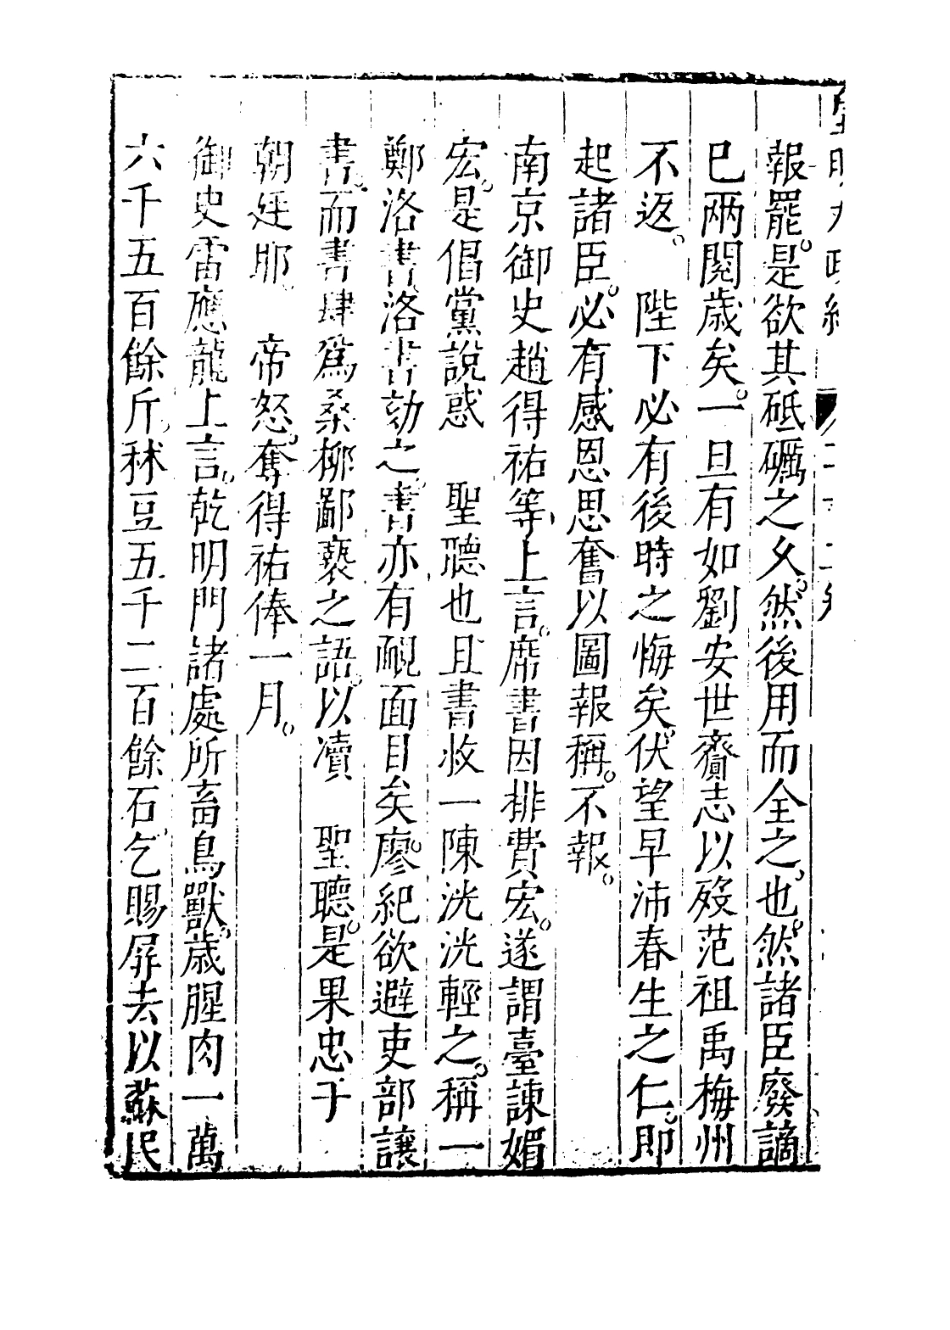 報罷是欲其砥礪之久然後用而全之也然諸臣廢謫
已兩閱歲矣一旦有如劉安世齎志以歿范祖禹梅州
不返。 陛下必有後時之悔矣伏望早沛春生之仁即
起諸臣必有感恩思奮以圖報稱。不報。
南京御史趙得祐等上言。席書因排費宏。遂謂臺諫媚
宏。是倡黨說惑 聖聽也且書救一陳洸洸輕之。稱一
鄭洛書洛書劾之書亦有靦面目矣廖紀欲避吏部讓
書而書肆爲桑柳鄙褻之語以凟 聖聽。是果忠于
朝廷耶 帝怒。奪得祐俸一月。
御史雷應龍上言。乾明門諸處所畜鳥獸。歲腥肉一萬
六千五百餘斤秫豆五千二百餘石乞賜屏去以蘇民